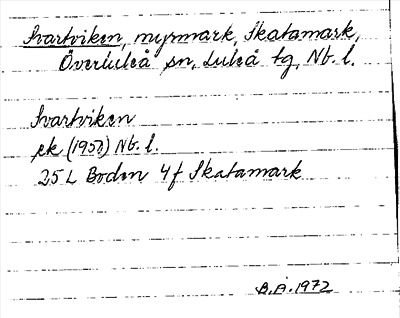 Svartviken, myrmark, Skatamark,
Överluleå sn, Luleå tg, Nb. l.
Svartviken
ek (1950) Nb. l.
25 L Boden 4 f Skatamark
B.Å. 1972